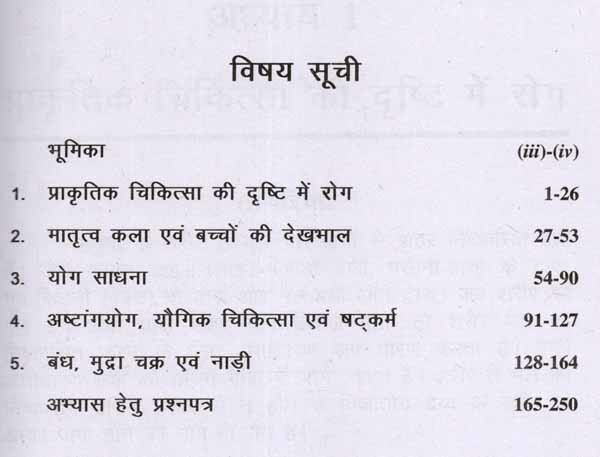 विषय सूची
भूमिका (iii)-(iv)
1. प्राकृतिक चिकित्सा की दृष्टि में रोग 1-26
2. मातृत्व कला एवं बच्चों की देखभाल 27-53
3. योग साधना 54-90
4. अष्टांगयोग, यौगिक चिकित्सा एवं षट्कर्म 91-127
5. बंध, मुद्रा चक्र एवं नाड़ी 128-164
अभ्यास हेतु प्रश्नपत्र 165-250